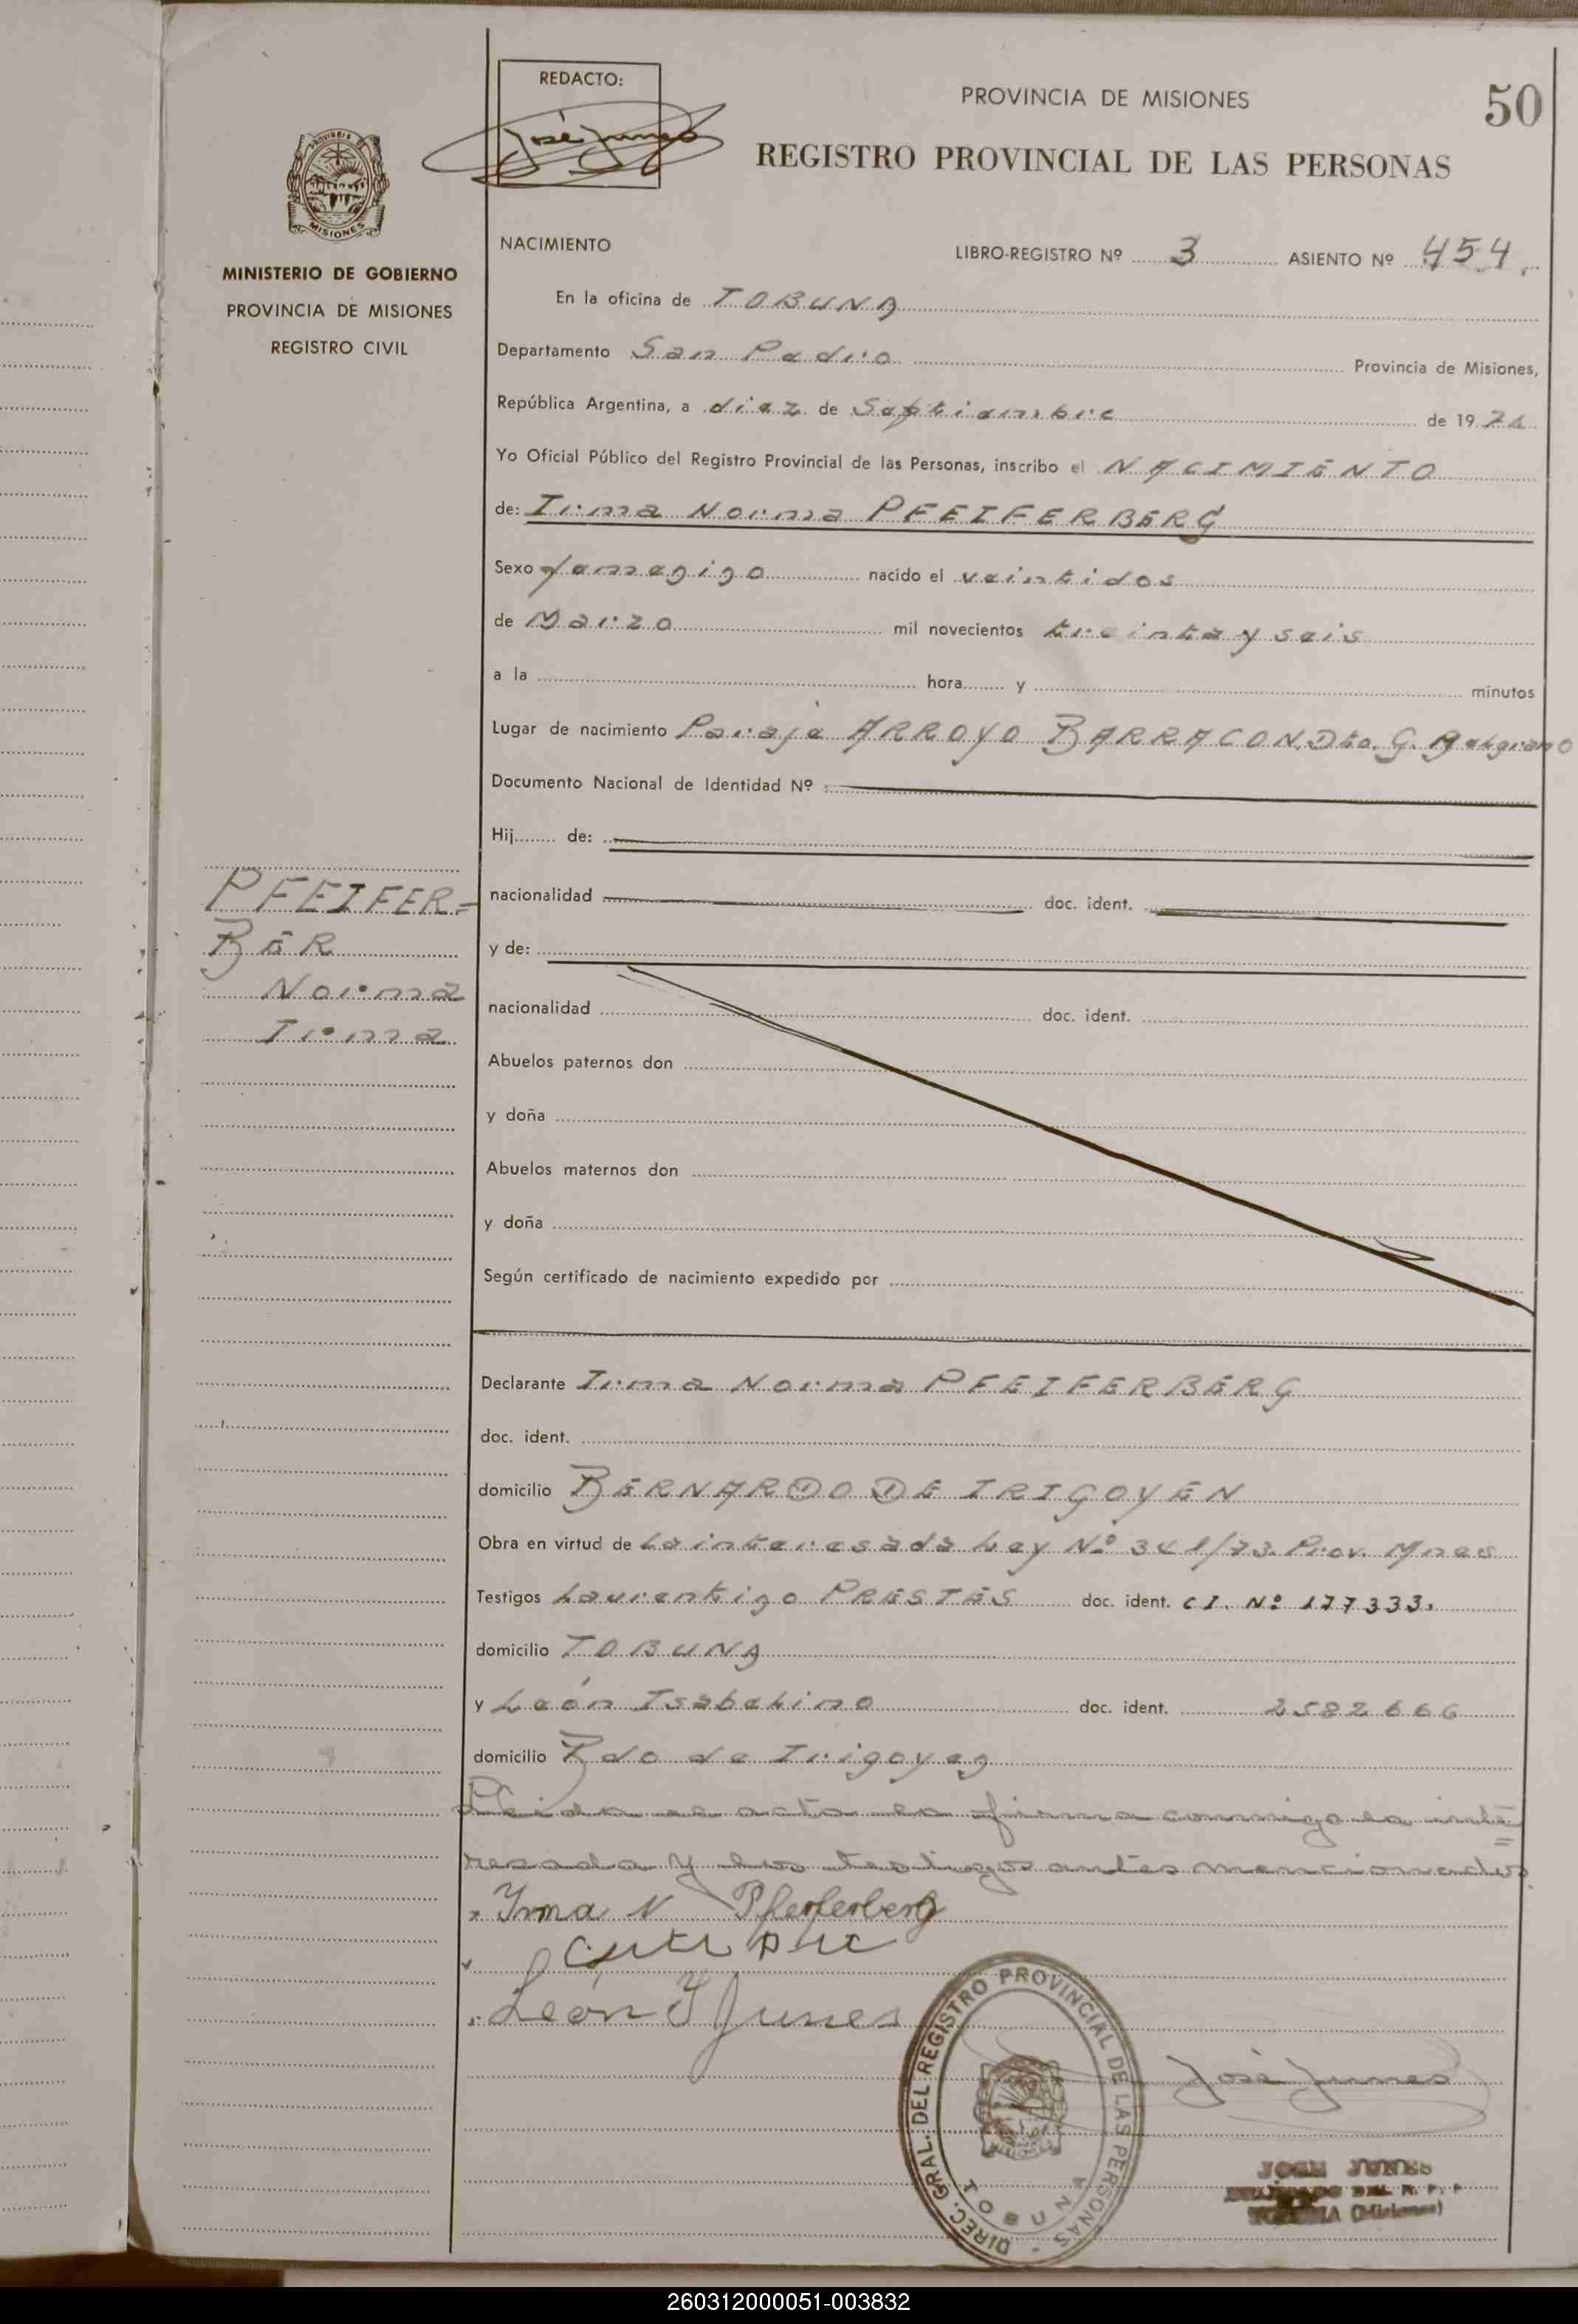 REDACTO:
José Junes
PROVINCIA DE MISIONES
50
REGISTRO PROVINCIAL DE LAS PERSONAS
MISIONES
MINISTERIO DE GOBIERNO
PROVINCIA DE MISIONES
REGISTRO CIVIL
NACIMIENTO
LIBRO-REGISTRO Nº 3 ASIENTO Nº 454.
En la oficina de TOBUNA
Departamento San Pedro Provincia de Misiones,
República Argentina, a diez de Septiembre de 1974
Yo Oficial Público del Registro Provincial de las Personas, inscribo el NACIMIENTO
de: Irma Norma PFEIFERBERG
Sexo femenino nacido el veintidos
de Marzo mil novecientos treinta y seis
a la hora y minutos
Lugar de nacimiento Paraje ARROYO BARRACON. Dto. G. Belgrano
Documento Nacional de Identidad Nº
Hij de:
nacionalidad doc. ident.
PFEIFER=
BER
Norma
Irma
y de:
nacionalidad doc. ident.
Abuelos paternos don
y doña
Abuelos maternos don
y doña
Según certificado de nacimiento expedido por
Declarante Irma Norma PFEIFERBERG
doc. ident.
domicilio BERNARDO DE IRIGOYEN
Obra en virtud de La interesada Ley Nº 341/73. Prov. Mnes
Testigos Laurentino PRESTES doc. ident. CI. Nº 177333.
domicilio TOBUNA
y León Isabelino doc. ident. 2582666
domicilio Bdo de Irigoyen
Leida el acta la firma conmigo la inte=
resada y los testigos antes mencionados.
Irma N Pfeiferberg
León I Junes
José Junes
DIREC. GRAL. DEL REGISTRO PROVINCIAL DE LAS PERSONAS - TOBUNA
JOSE JUNES
DEL R. P. P
TOBUNA (Misiones)
260312000051-003832